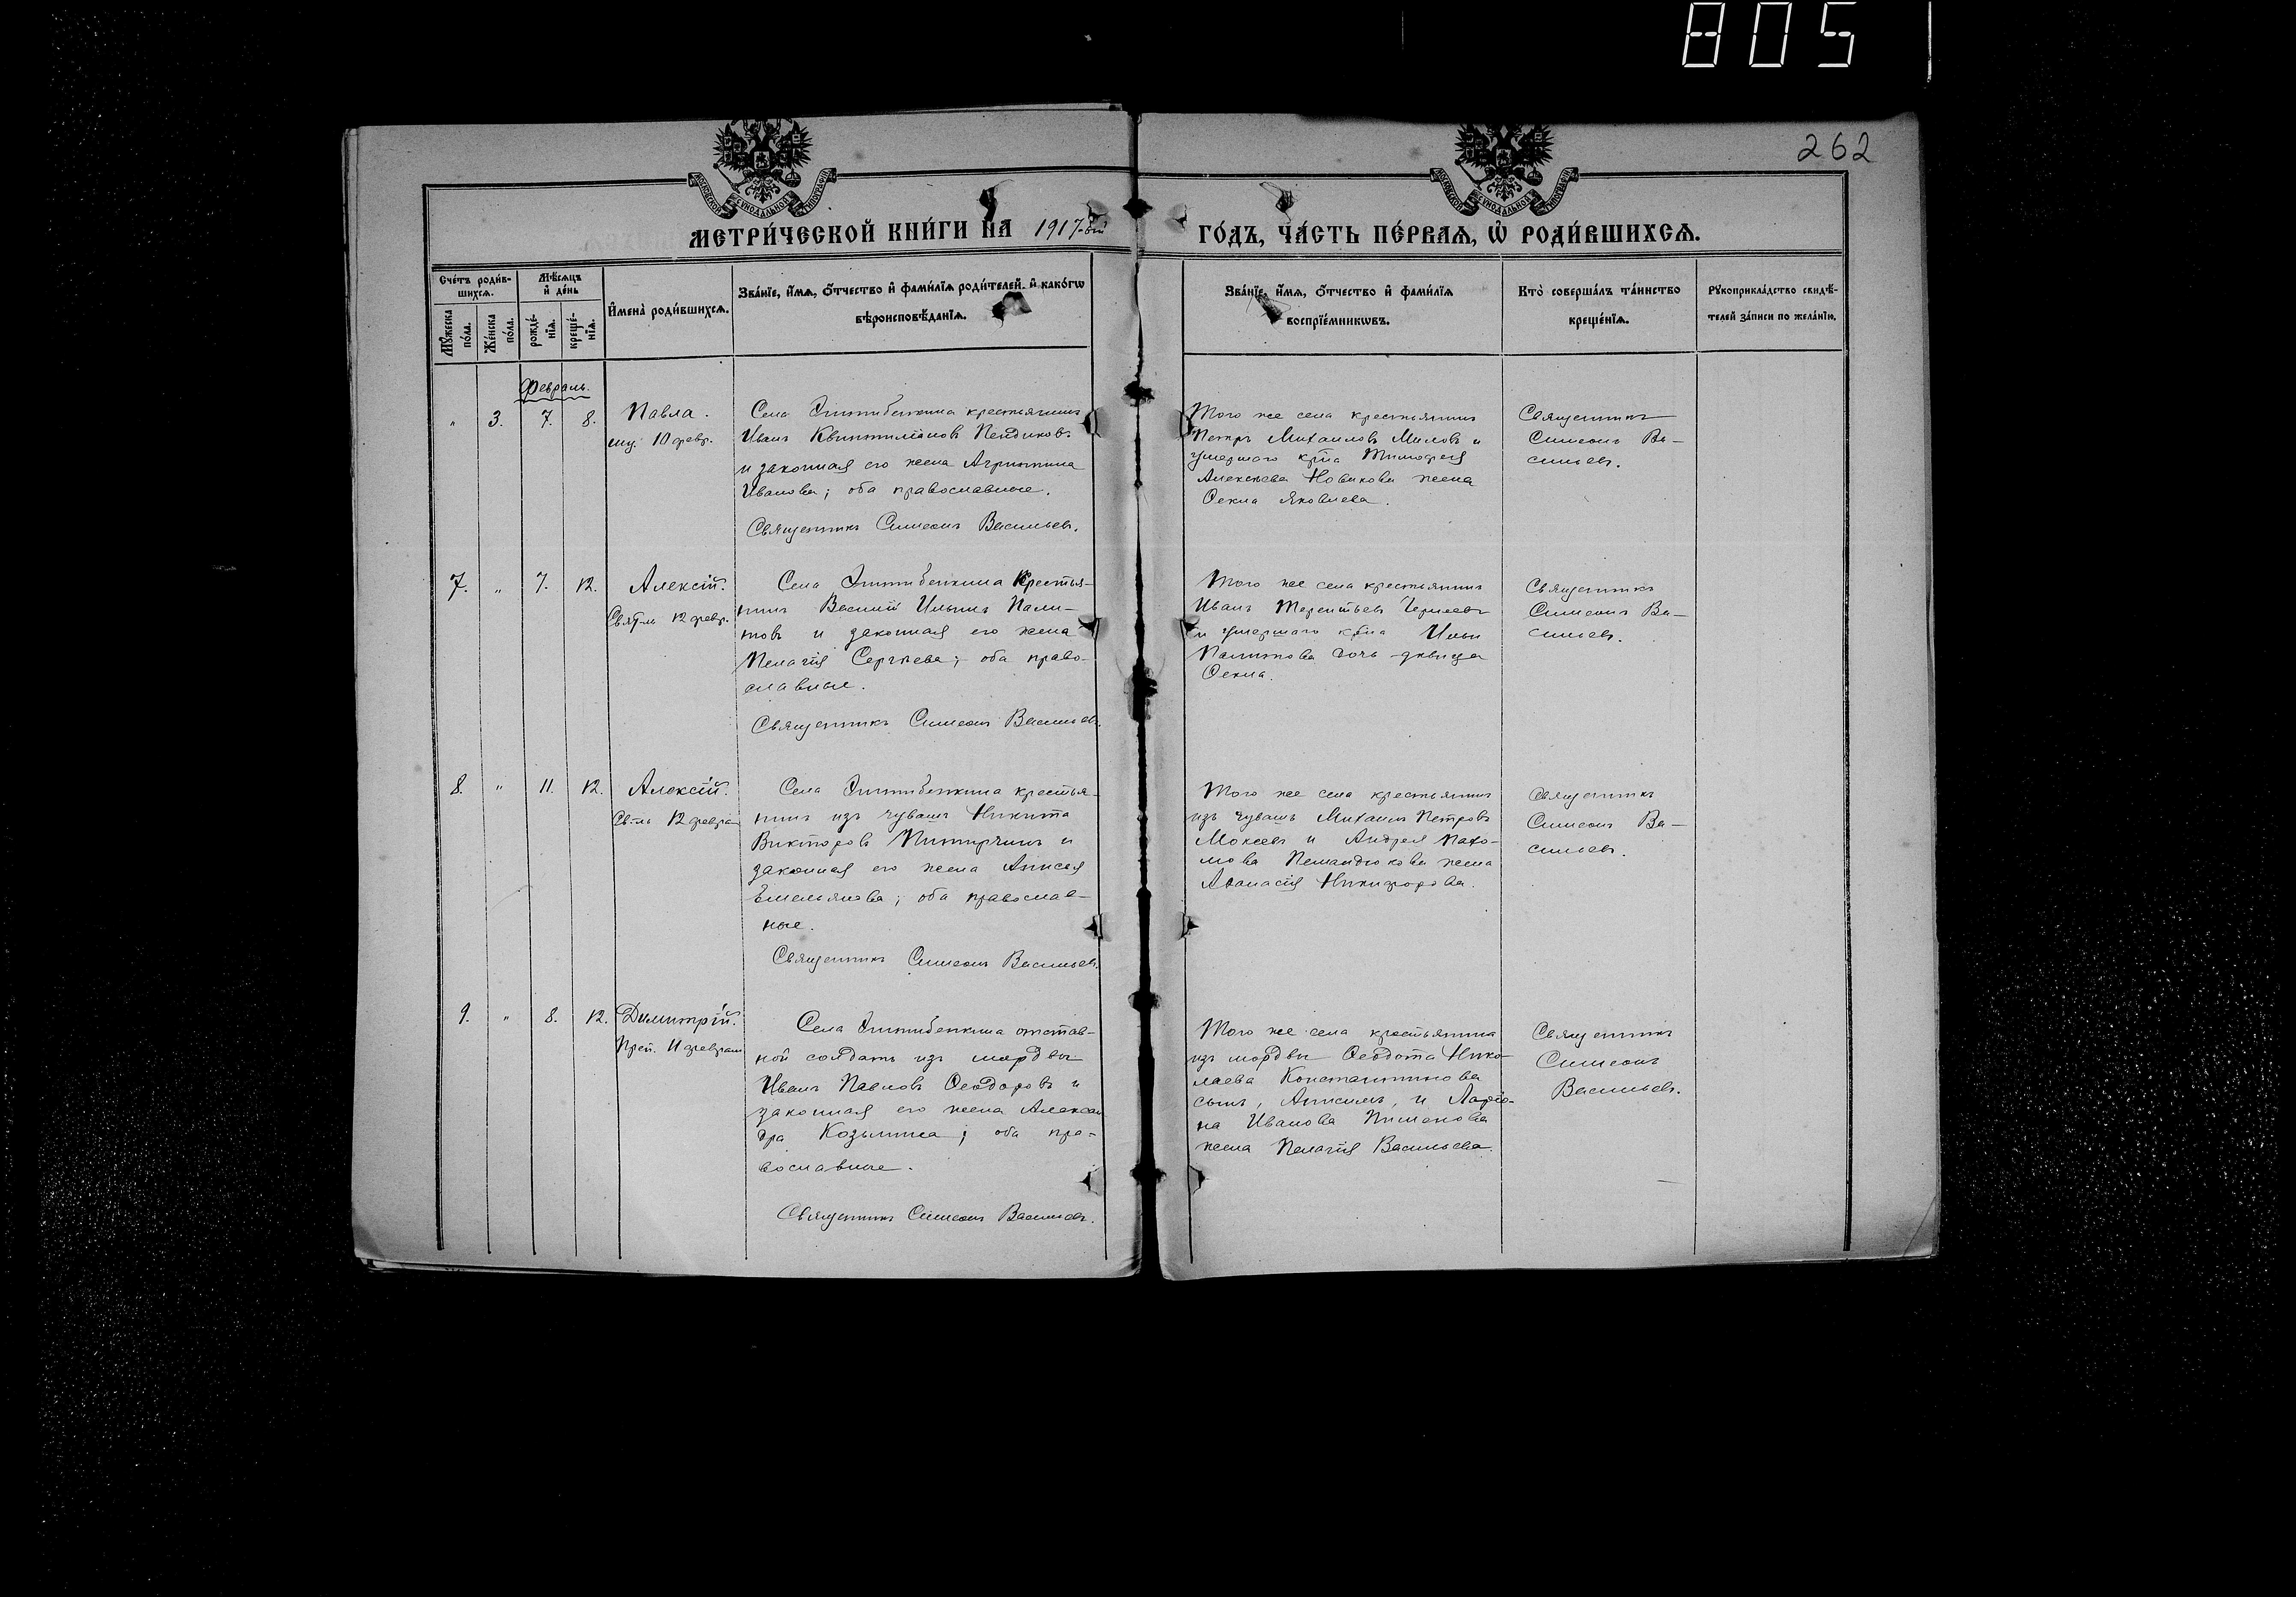 805
262
МОСКОВСКОЙ СѴНОДАЛЬНОЙ ТИПОГРАФІИ
МОСКОВСКОЙ СѴНОДАЛЬНОЙ ТИПОГРАФІИ
МЕТРИ́ЧЕСКОЙ КНИ́ГИ НА 1917-ый
ГО́ДЪ, ЧА́СТЬ ПЕ́РВАѦ, Ѡ РОДИ́ВШИХСѦ.
Сче́тъ роди́в-
шихсѧ.
Мꙋ́жеска
по́ла.
Же́нска
по́ла.
Мѣ́сѧцъ
и҆ де́нь
рожде́-
нїѧ.
креще́-
нїѧ.
И҆мена̀ роди́вшихсѧ.
Зва́нїе, и҆́мѧ, ѻ҆́тчество и҆ фами́лїѧ роди́телей, и҆ како́гѡ
вѣроисповѣ́данїѧ.
Зва́нїе, и҆́мѧ, ѻ҆́тчество и҆ фами́лїѧ
воспрїе́мникѡвъ.
Кто̀ соверша́лъ та́инство
креще́нїѧ.
Рꙋкоприкла́дство свидѣ́-
телей за́писи по жела́нїю.
Февраль.
" 3. 7. 8.
Павла.
муч. 10 февр.
Села крестьянинъ
Иванъ Квинтиліановъ Пендиковъ
и законная его жена Агриппина
Иванова; оба православные.
Священникъ Симеонъ Васильевъ.
Того же села крестьянинъ
Петръ Михаиловъ Миловъ и
умершаго кр-на Тимофея
Алексѣева Новикова жена
Ѳекла Яковлева.
Священникъ
Симеонъ Ва-
сильевъ.
7. " 7. 12.
Алексій.
Свят-ль 12 февр.
Села Крестья-
нинъ Василій Ильинъ Пали-
товъ и законная его жена
Пелагія Сергѣева; оба право-
славные.
Священникъ Симеонъ Васильевъ.
Того же села крестьянинъ
Иванъ Терентьевъ
и умершаго кр-на Ильи
Палитова дочь дѣвица
Ѳекла.
Священникъ
Симеонъ Ва-
сильевъ.
8. " 11. 12.
Алексій.
Св-ль 12 февраля
Села крестья-
нинъ изъ чувашъ Никита
Викторовъ и
законная его жена Анисія
Емельянова; оба православ-
ные.
Священникъ Симеонъ Васильевъ.
Того же села крестьянинъ
изъ чувашъ Михаилъ Петровъ
Мокеевъ и Андрея Пахо-
мова жена
Аѳанасія Никифорова.
Священникъ
Симеонъ Ва-
сильевъ.
9. " 8. 12.
Димитрій.
Преп. 11 февраля
Села отстав-
ной солдатъ изъ мордвы
Иванъ Павловъ Ѳеодоровъ и
законная его жена Алексан-
дра Козьмина; оба пра-
вославные.
Священникъ Симеонъ Васильевъ.
Того же села крестьянина
изъ мордвы Ѳеодота Нико-
лаева Константинова
сынъ, Анисимъ, и Ларіо-
на Иванова Пименова
жена Пелагія Васильева.
Священникъ
Симеонъ
Васильевъ.